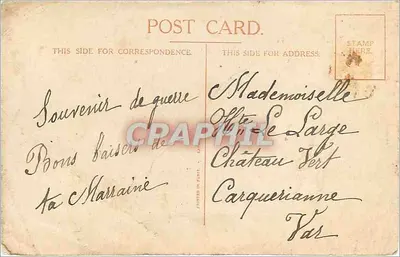 POST CARD.
THIS SIDE FOR CORRESPONDENCE.
THIS SIDE FOR ADDRESS.
STAMP
HERE.
Souvenir de guerre
Bons baisers de
ta Marraine
Mademoiselle
Le Large
Château Vert
Carquerianne
Var
CPAPHIL